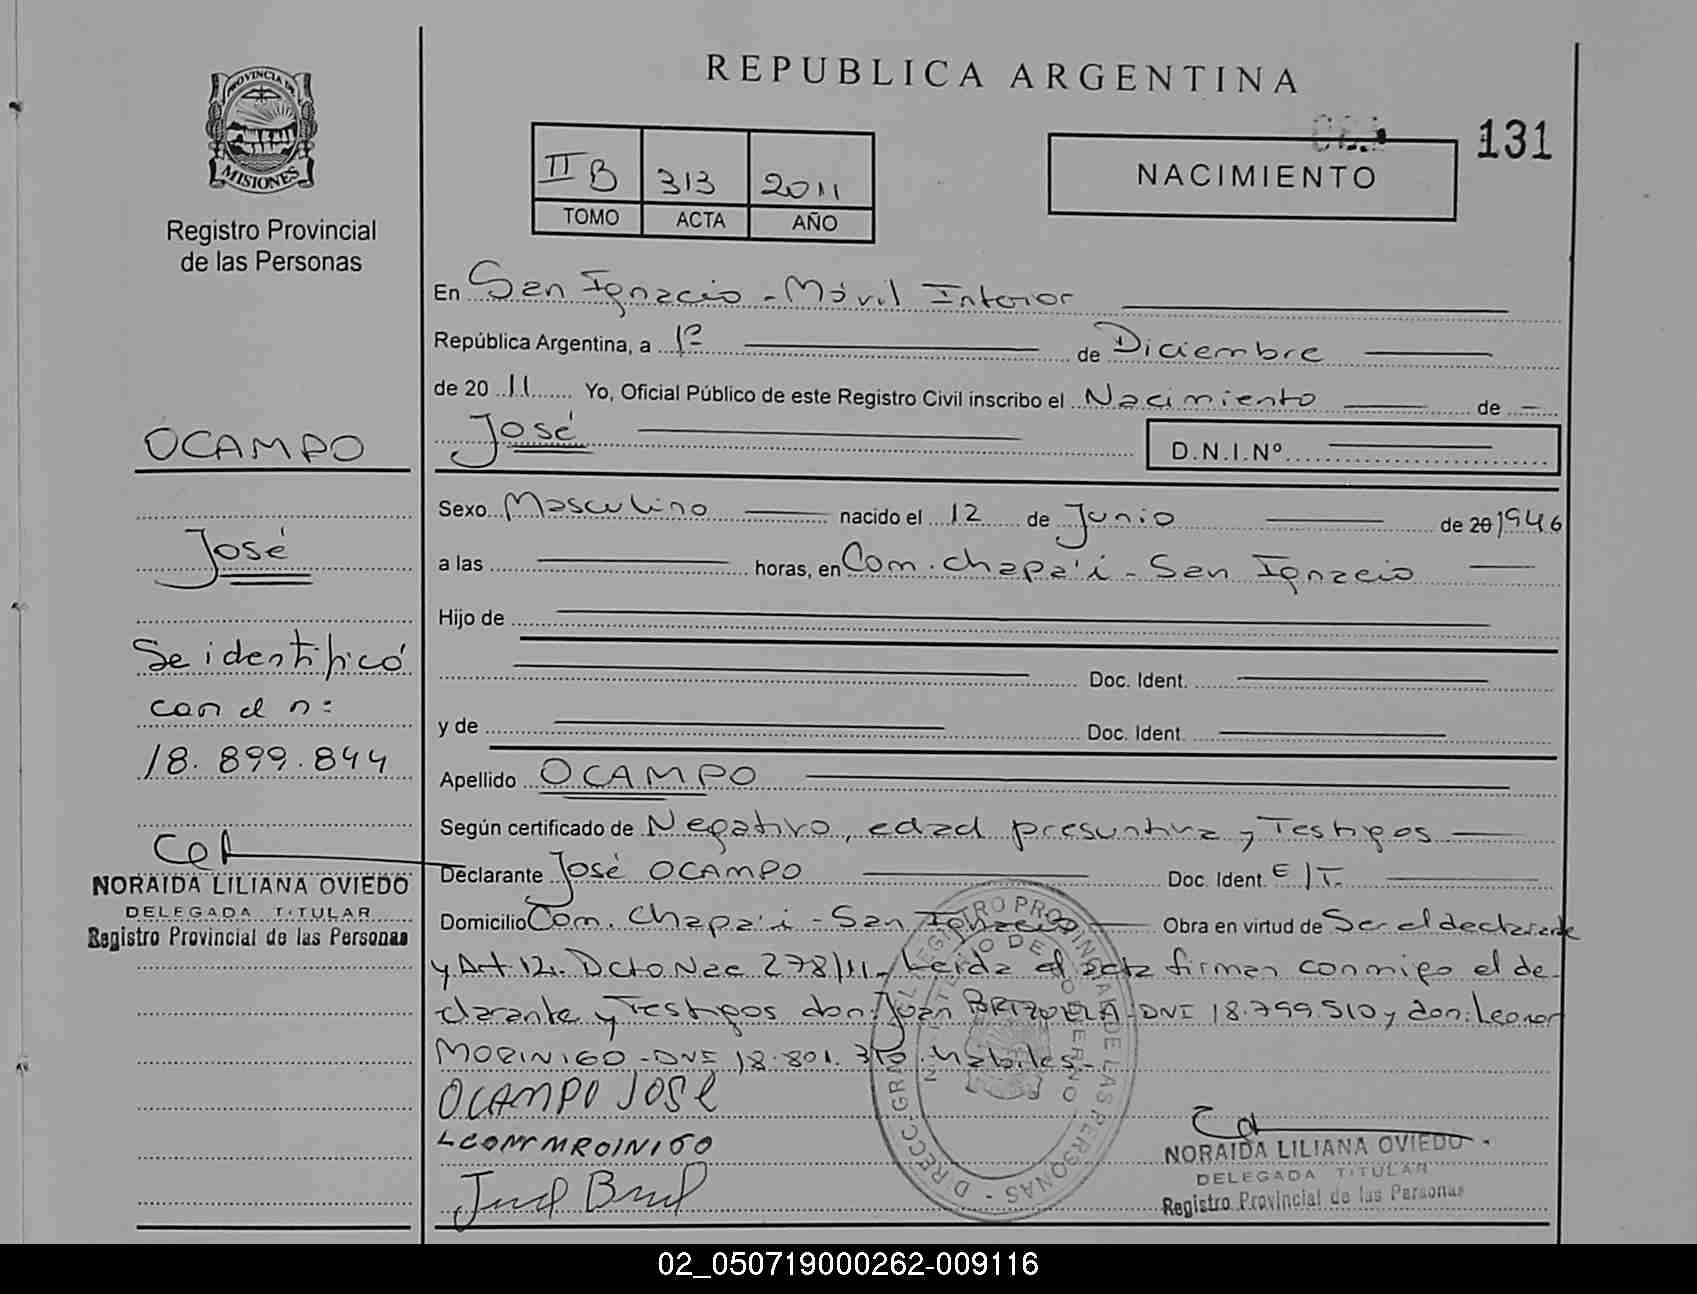 REPUBLICA ARGENTINA
PROVINCIA DE
MISIONES
Registro Provincial
de las Personas
II B 313 2011
TOMO ACTA AÑO
131
NACIMIENTO
En San Ignacio - Móvil Interior
República Argentina, a 1º de Diciembre
de 20 11 Yo, Oficial Público de este Registro Civil inscribo el Nacimiento de
José
D.N.I.Nº
Sexo Masculino nacido el 12 de Junio de 20 1946
a las horas, en Com. Chapa'i - San Ignacio
Hijo de
Doc. Ident.
y de Doc. Ident.
Apellido OCAMPO
Según certificado de Negativo, edad presuntiva y Testigos
Declarante José OCAMPO Doc. Ident. E/T.
Domicilio Com. Chapa'i - San Ignacio Obra en virtud de Ser el declarante
y Art. 12. Dcto Nac 278/11. Leida el acta firman conmigo el de-
clarante y Testigos don: Juan BRIZUELA - DNI 18.799.510 y don: Leonor
MORINIGO - DNI 18.801.310. habiles -
OCAMPO JOSE
NORAIDA LILIANA OVIEDO
DELEGADA TITULAR
Registro Provincial de las Personas
OCAMPO
José
Se identificó
con d n:
18.899.844
NORAIDA LILIANA OVIEDO
DELEGADA TITULAR
Registro Provincial de las Personas
02_050719000262-009116